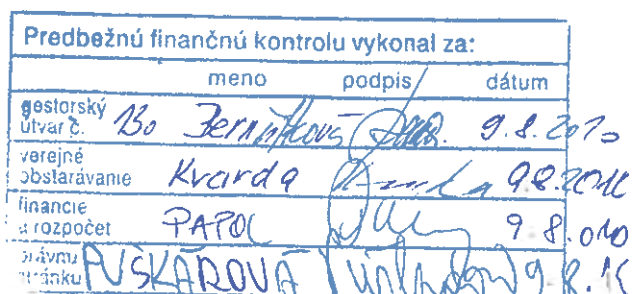 Predbežnú finančnú kontrolu vykonal za:
meno podpis dátum
gestorský útvar č. 130 9.8.2010
verejné obstarávanie Kvarda 9.8.2010
financie a rozpočet 9 8.010
právnu stránku PUŠKÁROVÁ 9.8.10